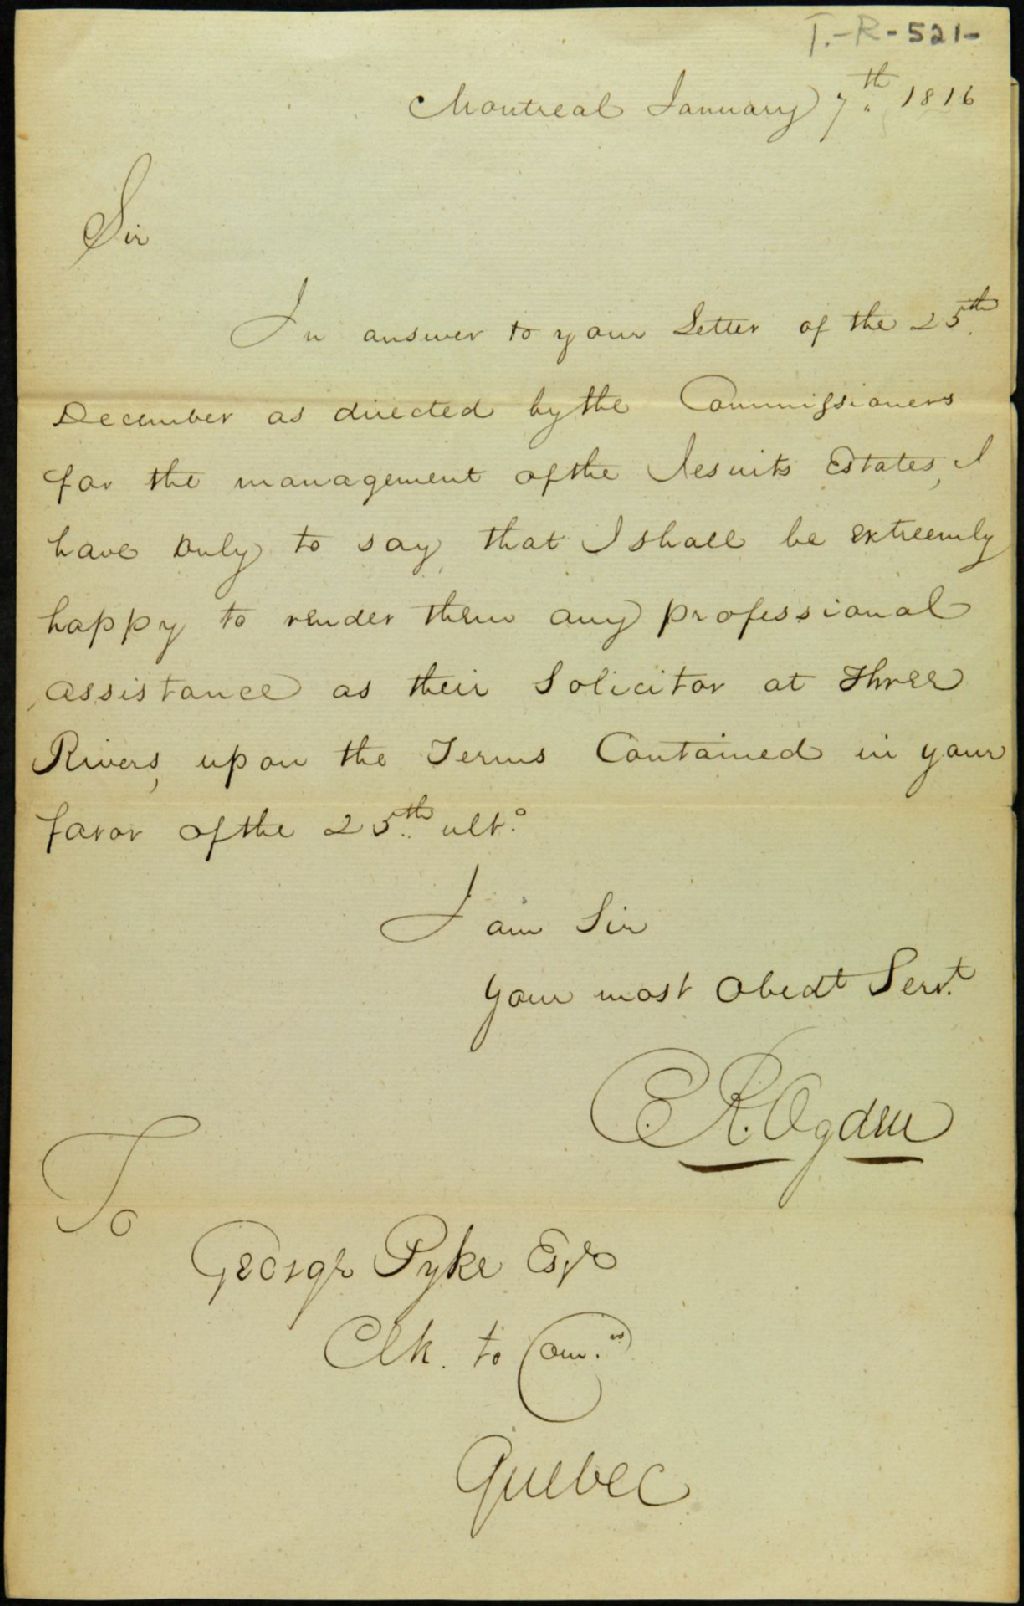 T.-R-521-
Montreal January 7th 1816
Sir
In answer to your Letter of the 25th
December as directed by the Commissioners
for the management of the Jesuits Estates, I
have Only to say that I shall be extreemly
happy to render them any professional
assistance as their Solicitor at Three
Rivers, upon the Terms Contained in your
favor of the 25th ulto.
I am Sir
your most Obedt Servt
C. R. Ogden
To
George Pyke Esqr
Clk. to Comrs
Quebec